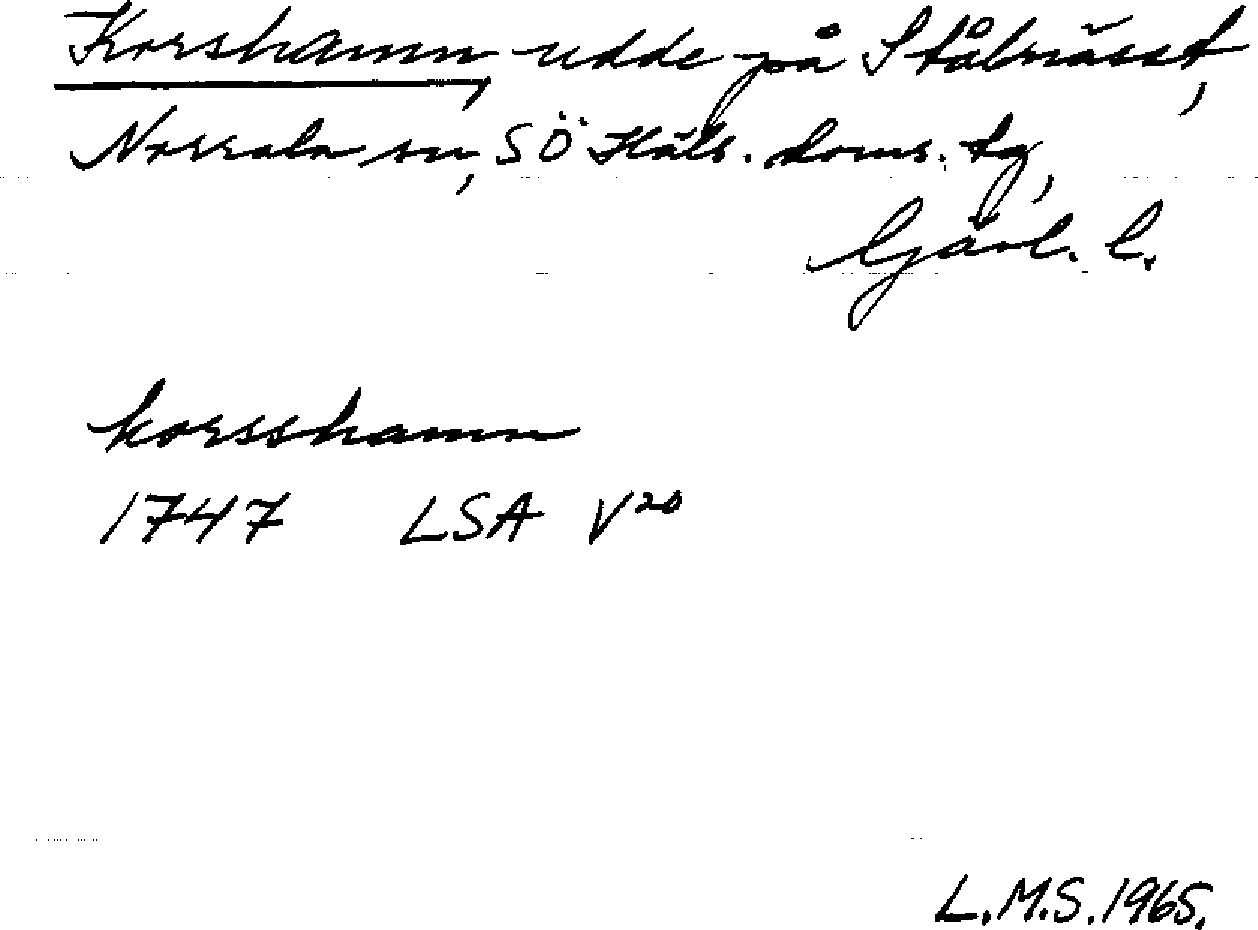 Korshamn, udde på Stålnäset,
Norrala sn, SÖ Häls. doms. tg,
Gävl. l.
korsshamn
1747 LSA V²⁰
L.M.S. 1965.